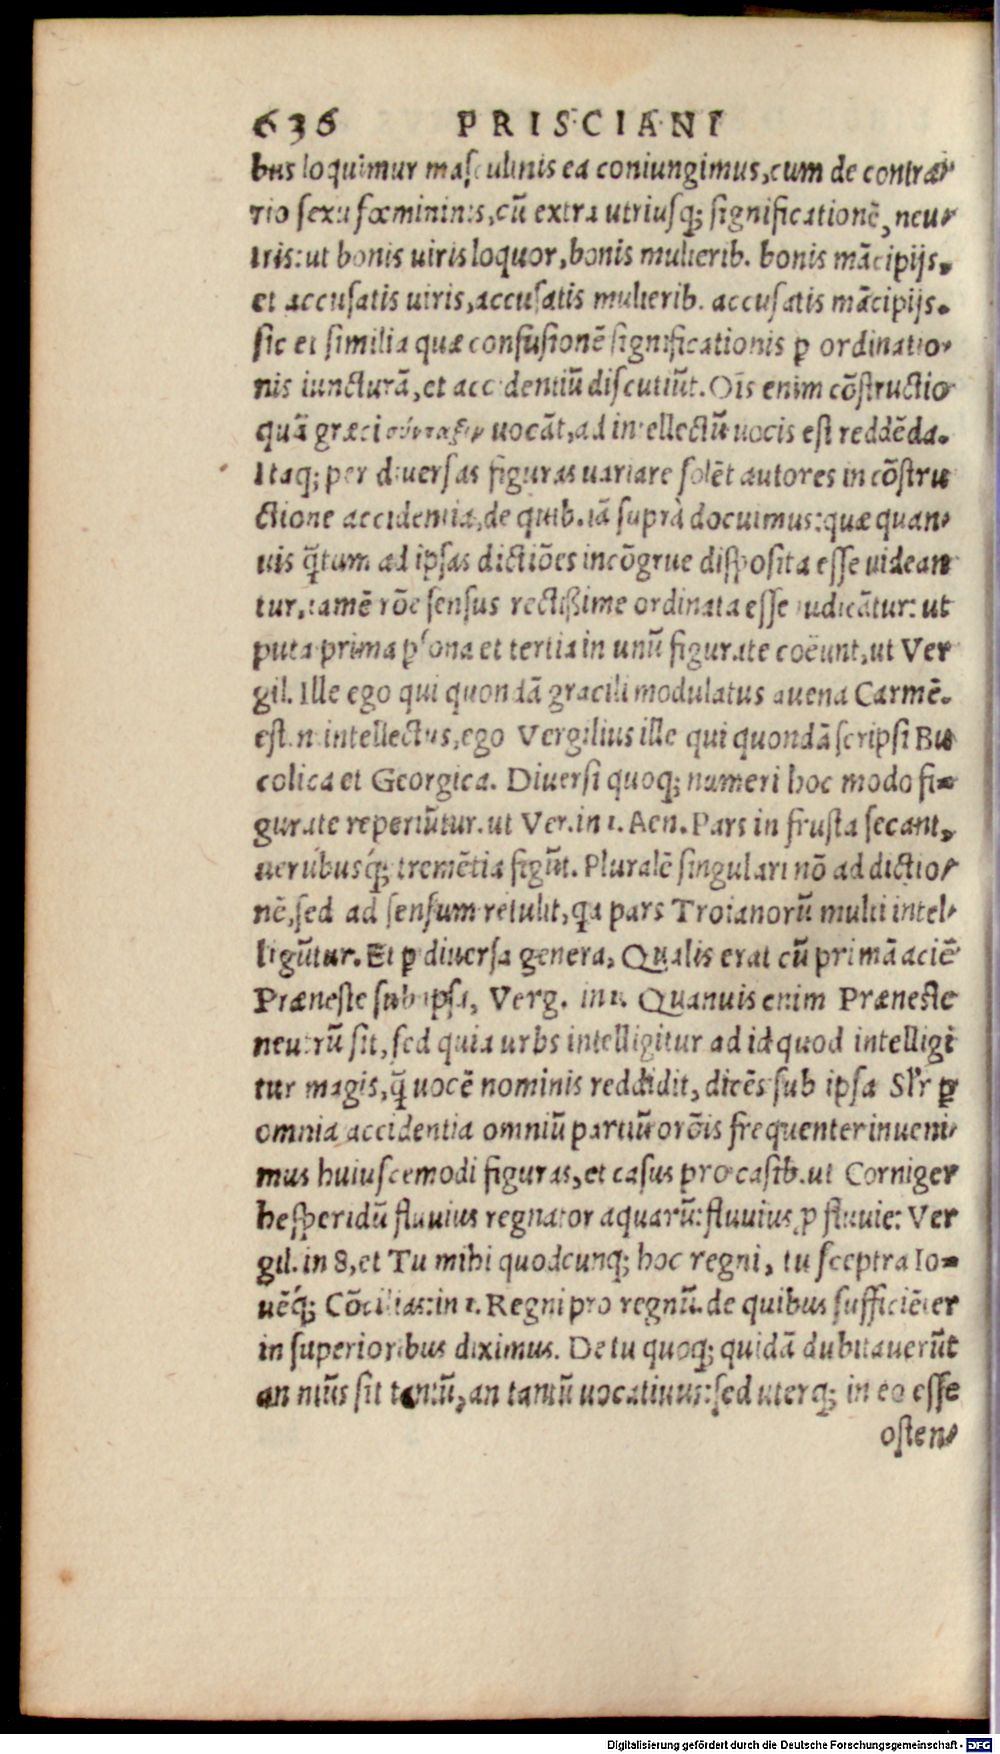 636 PRISCIANI
bus loquimur masculinis ea coniungimus, cum de contra⸗
rio sexu fœmininis, cū extra utriusq; significationē, neu⸗
tris: ut bonis uiris loquor, bonis mulierib. bonis mācipijs,
et accusatis uiris, accusatis mulierib. accusatis mācipijs.
sic et similia quæ confusionē significationis ꝑ ordinatio⸗
nis iuncturā, et accidentiū discutiūt. Oīs enim cōstructio
quā græci σύνταξιν uocāt, ad intellectū uocis est reddēda.
Itaq; per diuersas figuras uariare solēt autores in cōstru
ctione accidentia, de quib. iā suprà docuimus: quæ quan⸗
uis q̄tum ad ipsas dictiōes incōgrue disposita esse uidean
tur, tamē rōe sensus rectißime ordinata esse iudicātur: ut
puta prima ꝑsona et tertia in unū figurate coëunt, ut Ver
gil. Ille ego qui quondā gracili modulatus auena Carmē.
est n. intellectus, ego Vergilius ille qui quondā scripsi Bu
colica et Georgica. Diuersi quoq; numeri hoc modo fi⸗
gurate reperiūtur. ut Ver. in 1. Aen. Pars in frusta secant,
uerúbusq́; tremētia figūt. Pluralē singulari nō ad dictio⸗
nē, sed ad sensum retulit, qa pars Troianorū multi intel⸗
ligūtur. Et ꝑ diuersa genera, Qualis erat cū primā aciē
Præneste sub ipsa, Verg. in Quanuis enim Præneste
neutrū sit, sed quia urbs intelligitur ad id quod intelligi
tur magis, q̄ uocē nominis reddidit, dicēs sub ipsa Sl'r ꝑ
omnia accidentia omniū partiū orōis frequenter inueni⸗
mus huiuscemodi figuras, et casus pro casib. ut Corniger
hesperidū fluuius regnator aquarū: fluuius ꝓ fluuie: Ver
gil. in 8, et Tu mihi quodcunq; hoc regni, tu sceptra Io⸗
uēq́; Cōcilias: in 1. Regni pro regnū. de quibus sufficiēter
in superioribus diximus. De tu quoq; quidā dubitauerūt
an nt̄us sit tantū, an tantū uocatiuus: sed uterq; in eo esse
osten⸗
Digitalisierung gefördert durch die Deutsche Forschungsgemeinschaft - DFG